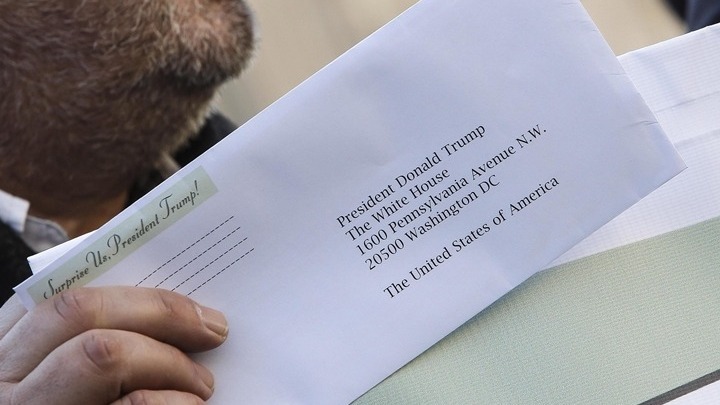 Surprize Us, President Trump!
President Donald Trump
The White House
1600 Pennsylvania Avenue N.W.
20500 Washington DC
The United States of America